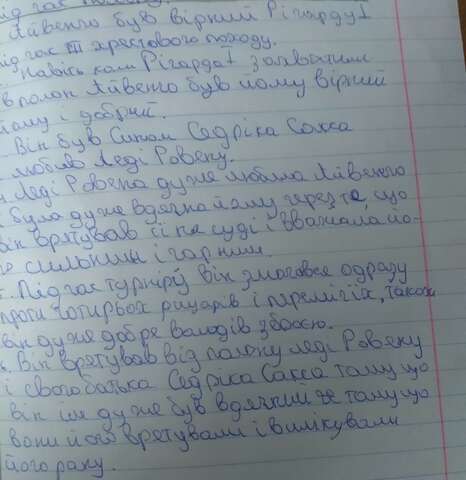 під час
Айвенго був вірний Річарду І
під час ІІІ хрестового походу.
Навіть коли Річарда І захватили
в полон Айвенго був йому вірний
йому і добрий.
Він був Сином Седріка Сакса
любив Леді Ровену.
Леді Ровена дуже любила Айвенго
і була дуже вдячна йому через те, що
він врятував її на суді і вважала йо-
го сильним і гарним.
Під час турніру він змагався одразу
проти чотирьох рицарів і переміг їх, також
він дуже добре володів зброєю.
Він врятував від полону леді Ровену
і свого батька Седріка Сакса тому що
він їм дуже був вдячний за тому що
вони його врятували і вилікували
його рану.